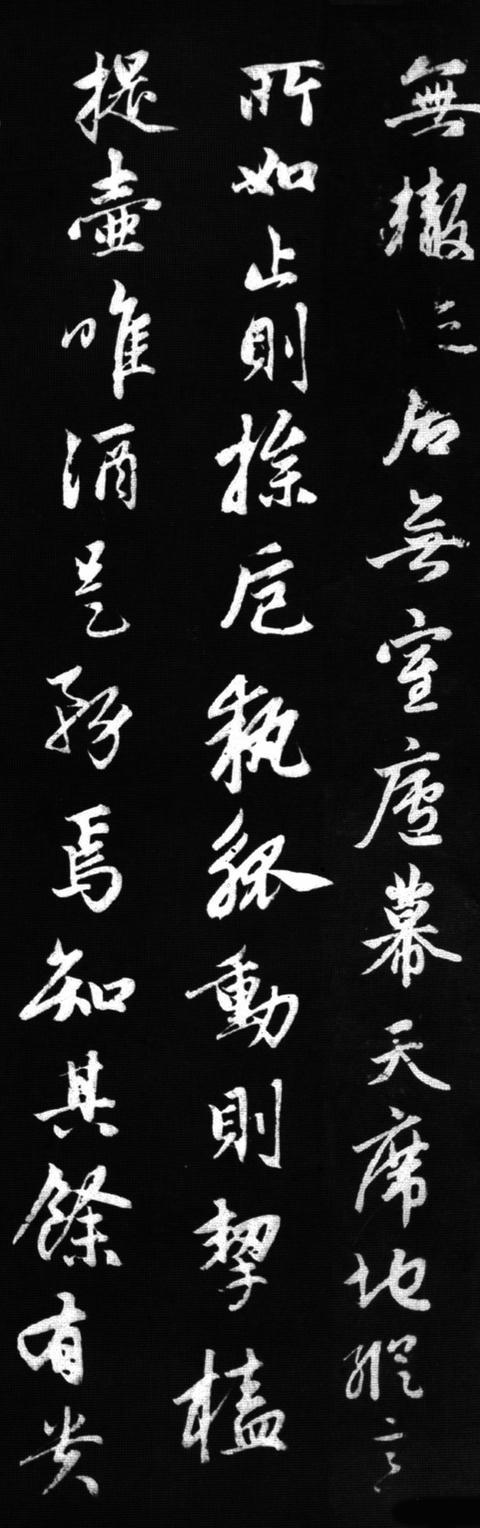 無轍迹居無室廬幕天席地縱意
所如止則操卮執觚動則挈榼
提壺唯酒是務焉知其餘有貴